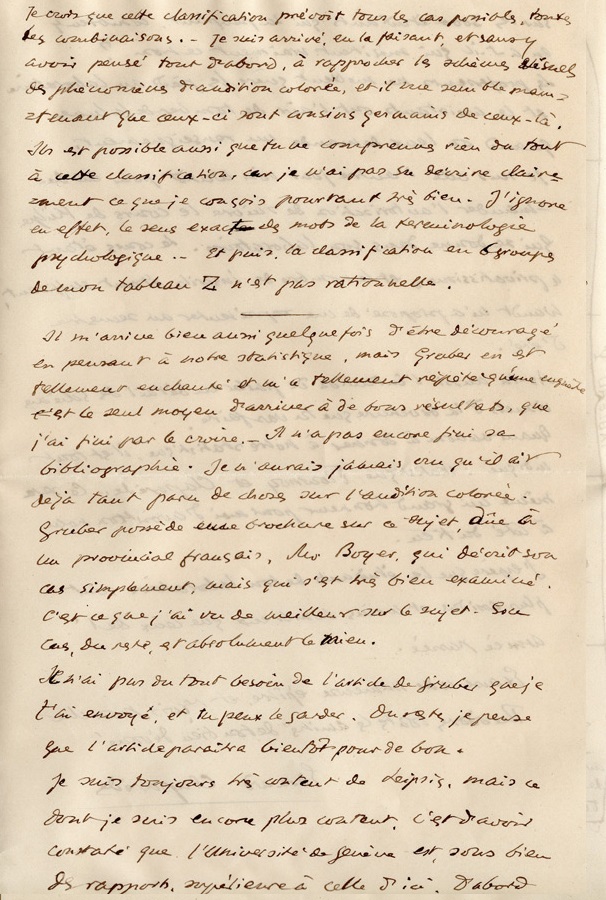 Je crois que cette classification prévoit tous les cas possibles, toutes
les combinaisons. – Je suis arrivé, en la faisant, et sans y
avoir pensé tout d'abord, à rapprocher les schèmes visuels
des phénomènes d'audition colorée, et il me semble main=
=tenant que ceux-ci sont cousins germains de ceux-là.
Il est possible aussi que tu ne comprennes rien du tout
à cette classification, car je n'ai pas su décrire claire=
=ment ce que je conçois pourtant très bien. J'ignore
en effet, le sens exact des mots de la terminologie
psychologique. – Et puis, la classification en 6 groupes
de mon tableau Z n'est pas rationnelle.
Il m'arrive bien aussi quelquefois d'être découragé
en pensant à notre statistique, mais Gruber en est
tellement enchanté et m'a tellement répété qu'une enquête
c'est le seul moyen d'arriver à de bons résultats, que
j'ai fini par le croire. – Il n'a pas encore fini sa
bibliographie. Je n'aurais jamais cru qu'il ait
déjà tant paru de choses sur l'audition colorée.
Gruber possède une brochure sur ce sujet, dûe à
un provincial français, Mr Boyer, qui décrit son
cas simplement, mais qui s'est très bien examiné.
C'est ce que j'ai vu de meilleur sur le sujet. Son
cas, du reste, est absolument le mien.
Je n'ai pas du tout besoin de l'article de Gruber que je
t'ai envoyé, et tu peux le garder. Du reste, je pense
que l'article paraîtra bientôt pour de bon.
Je suis toujours très content de Leipzig, mais ce
dont je suis encore plus content, c'est d'avoir
constaté que l'Université de Genève est, sous bien
des rapports, supérieure à celle d'ici. D'abord